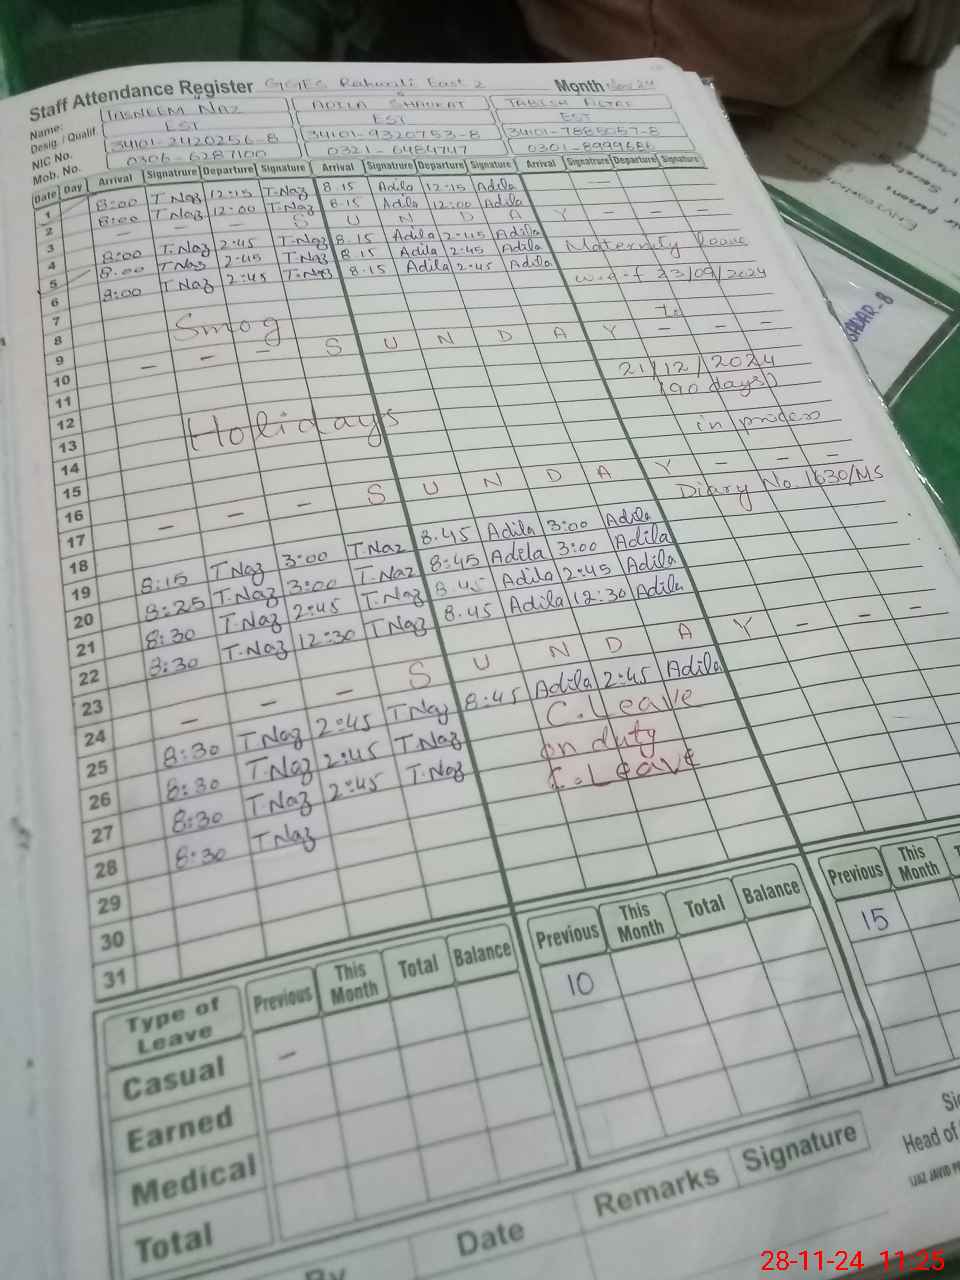 Staff Attendance Register GGES Rakanli East 2 Month Nov 24
Name: TASNEEM NAZ ADILA SHAUKAT
Desig. / Qualif. EST EST EST
NIC No. 34101-2420256-8 34101-9320753-8 34101-7885057-8
Mob. No. 0306-6287100 0321-6484747 0301-8999686
Date Day Arrival Signatrure Departure Signature Arrival Signatrure Departure Signature Arrival Signatrure Departure Signature
1 8:00 T.Naz 12:15 T.Naz 8.15 Adila 12:15 Adila —
2 8:00 T.Naz 12:00 T.Naz 8.15 Adila 12:00 Adila
3 — — — S U N D A Y — — —
4 8:00 T.Naz 2:45 T.Naz 8.15 Adila 2:45 Adila Maternity leave
5 8:00 T.Naz 2:45 T.Naz 8.15 Adila 2:45 Adila
6 8:00 T.Naz 2:45 T.Naz 8.15 Adila 2:45 Adila w.e.f 23/09/2024
7 To
8 Smog
9
10 — — — S U N D A Y — — —
11 21/12/2024
12 (90 days)
13 Holidays
14 in process
15
16
17 — — — S U N D A Y — — —
18 Diary No. 1630/MS
19 8:15 T.Naz 3:00 T.Naz 8.45 Adila 3:00 Adila
20 8:25 T.Naz 3:00 T.Naz 8:45 Adila 3:00 Adila
21 8:30 T.Naz 2:45 T.Naz 8.45 Adila 2:45 Adila
22 8:30 T.Naz 12:30 T.Naz 8.45 Adila 12:30 Adila
23
24 — — — S U N D A Y — — —
25 8:30 T.Naz 2:45 T.Naz 8:45 Adila 2:45 Adila
26 8:30 T.Naz 2:45 T.Naz C.Leave
27 8:30 T.Naz 2:45 T.Naz on duty
28 8:30 T.Naz C.Leave
29
30
31
Type of Leave Previous This Month Total Balance Previous This Month Total Balance Previous This Month
Casual — 10 15
Earned
Medical
Total
By Date Remarks Signature
Head of
SADAR-B
28-11-24 11:25